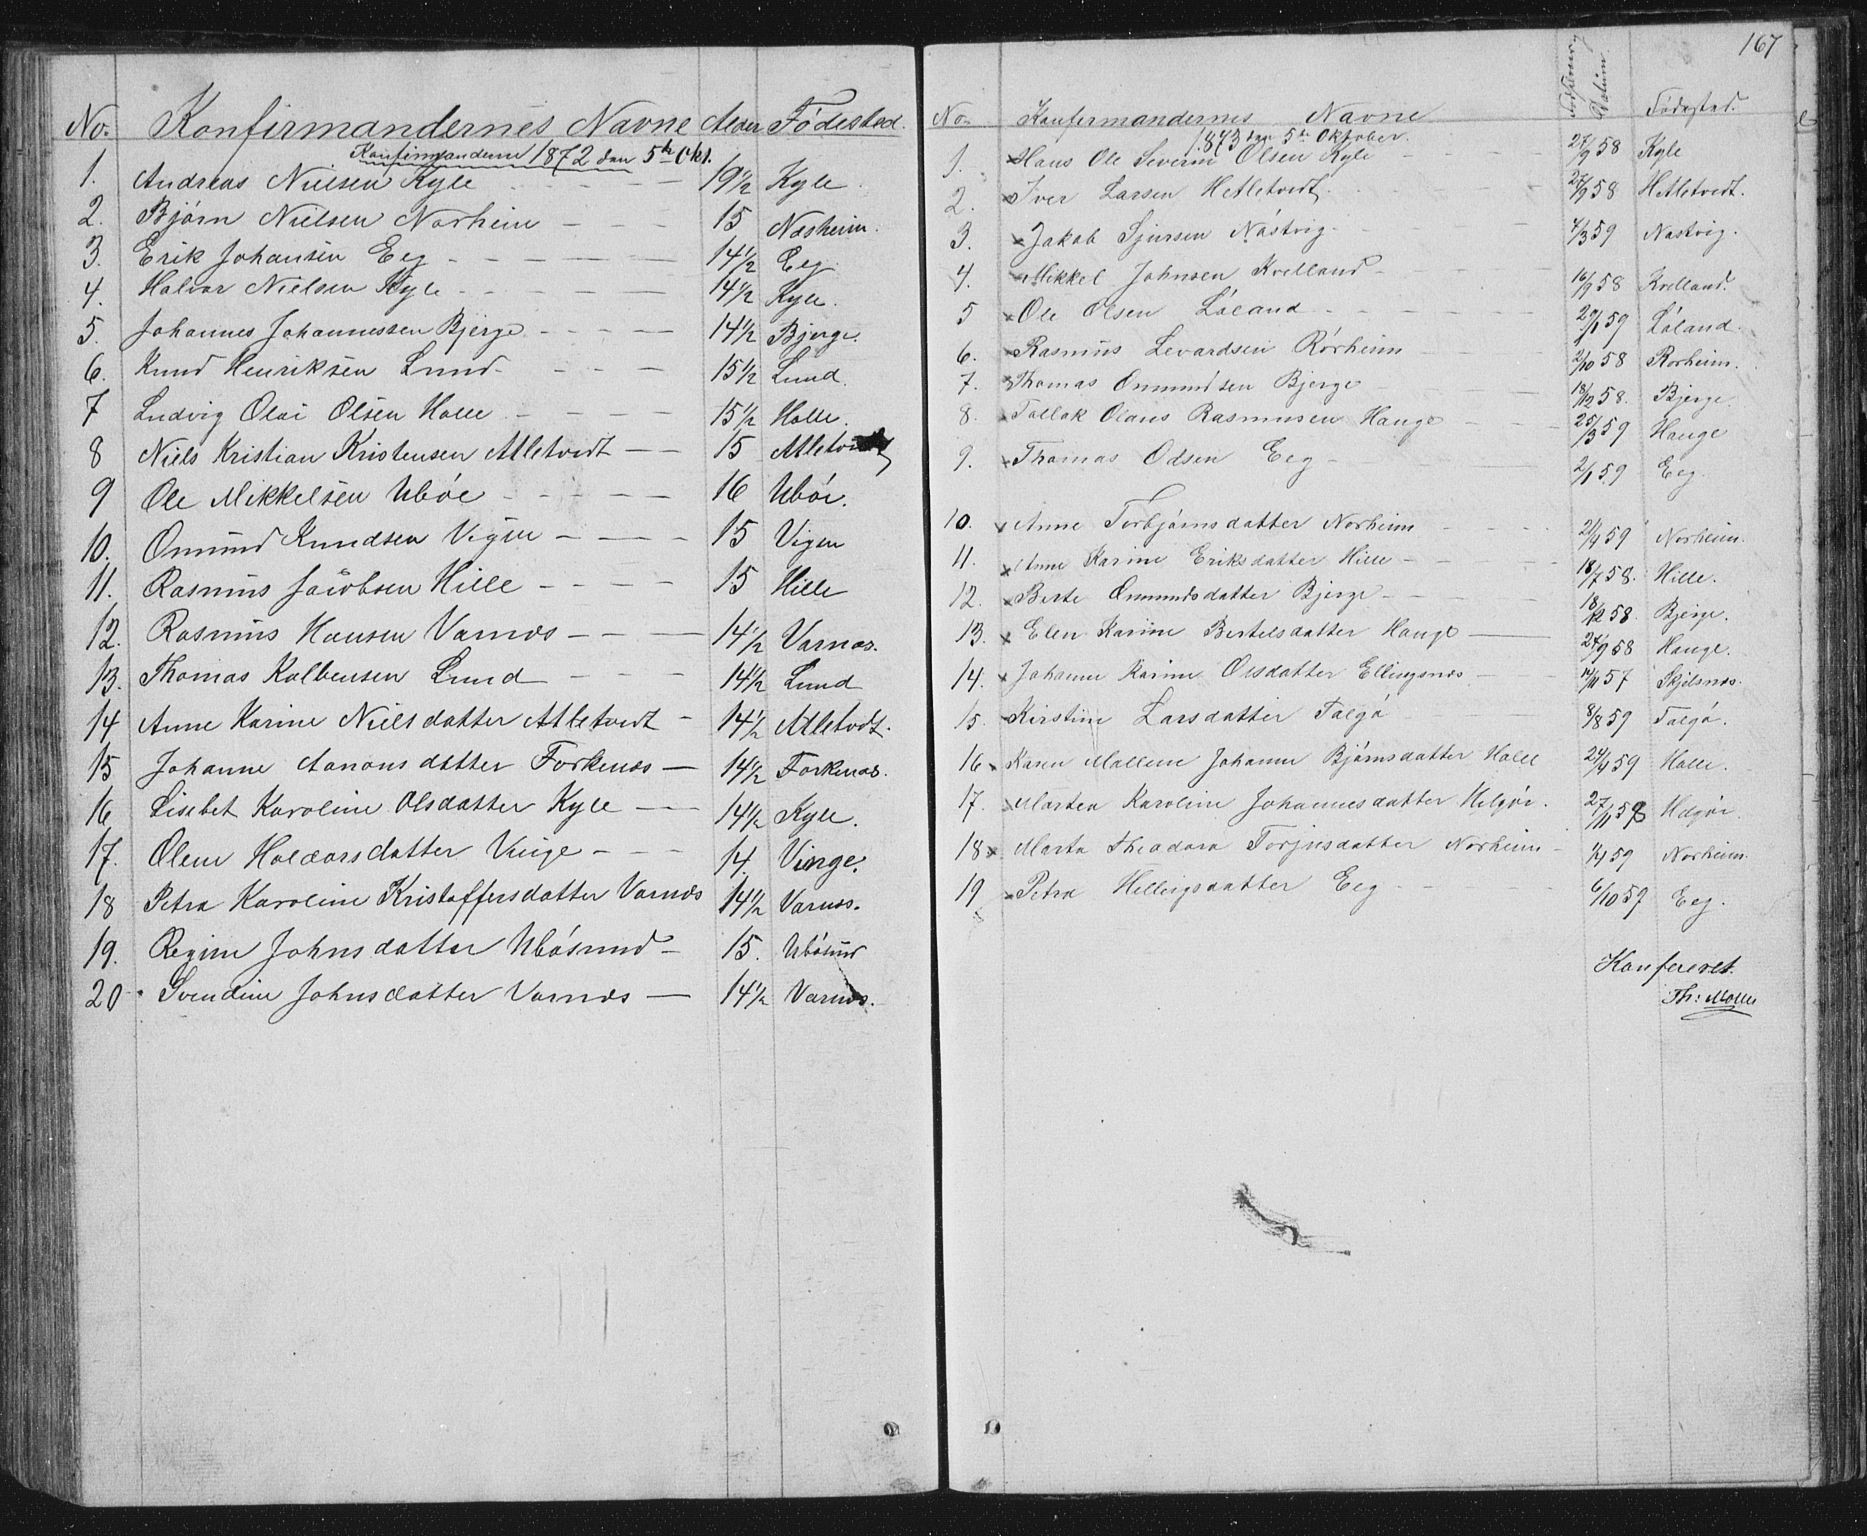 No. Konfirmandernes Navne Alder Födested.
Konfirmanderne 1872 den 5te Okt.
1. Andreas Nielsen Kyle 19 1/2 Kyle.
2. Björn Nielsen Norheim 15 Norheim.
3. Erik Johansen Eeg 14 1/2 Eeg
4. Halvor Nielsen Kyle 14 1/2 Kyle.
5. Johannes Johannessen Bjerge 14 1/2 Bjerge.
6. Knud Henriksen Lund 15 1/2 Lund.
7 Ludvig Olai Olsen Halle 15 1/2 Halle.
8 Niels Kristian Kristensen Atletvedt 15
9 Ole Mikkelsen Uböe 16 Uböe.
10. Omund Knudsen Vigen 15 Vigen
11. Rasmus Jacobsen Hille 15 Hille
12. Rasmus Hansen Varnæs 14 1/2 Varnæs.
13. Thomas Kolbensen Lund 14 1/2 Lund
14 Anne Karine Nielsdatter Atletvedt 14 1/2 Atletvdt.
15 Johanne Aanonsdatter Forkenæs 14 1/2 Forkenæs.
16 Lisebet Karoline Olsdatter Kyle 14 1/2 Kyle.
17. Olene Haldorsdatter Vinge 14 Vinge.
18 Petra Karoline Kristoffersdatter Varnæs 14 1/2 Varnæs.
19. Regine Johnsdatter Ubösund 15. Ubösund
20 Svendine Johnsdatter Varnæs 14 1/2 Varnæs.
167
No. Konfirmandernes Navne Datum Födested.
1873 den 5te Oktober.
1. × Hans Ole Severin Olsen Kyle 27/9 58 Kyle
2. × Iver Larsen Hetletvedt 27/9 58 Hetletvedt.
3. × Jakob Sjursen Nástvig 4/3 59 Nastvig.
4. × Mikkel Johnsen Kvelland 16/9 58 Kvelland.
5 × Ole Olsen Löland 29/1 59 Löland.
6. × Rasmus Levardsen Rörheim 2/10 58 Rörheim.
7. × Thomas Ommundsen Bjerge 18/12 58. Bjerge
8. × Tollak Olaus Rasmussen Hauge 25/3 59 Hauge
9. × Thomas Odsen Eeg 2/1 59 Eeg.
10. × Anne Torbjörnsdatter Norheim 21/4 59 Norheim.
11. × Anne Karine Eriksdatter Hille 18/7 58. Hille.
12. × Berte Ommundsdatter Bjerge 18/12 58 Bjerge.
13. × Elen Karine Bertelsdatter Hauge 24/9 58 Hauge.
14. × Johanne Karine Olsdatter Ellingsnæs 14/11 57 Skjelsnæs.
15. × Kirstine Larsdatter Talgö 8/8 59 Talgö.
16 × Karen Mallene Johanne Björnsdatter Halle 24/4 59 Halle.
17. × Martea Karoline Johannesdatter Helgöe. 27/11 58 Helgöe.
18 × Marta Theodora Torjusdatter Norheim 1/4 59 Norheim.
19 × Petra Hellingsdatter Eeg 6/10 57 Eeg.
Konfereret.
Th: Möller